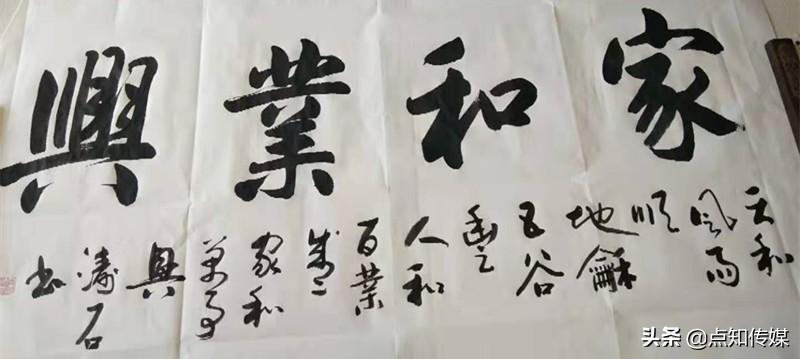 家和業興
天和
风雨
順
地龢
五谷
豐
人和
百業
家和
萬事
興
濤石
书
头条 @点知传媒